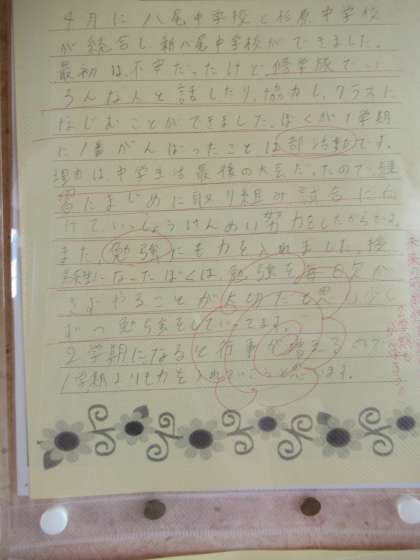 4月に八尾中学校と杉原中学校
が統合し、新八尾中学校ができました。
最初は不安だったけど、修学旅で
ろんな人と話したり、協力し、クラスに
なじむことができました。ぼくが1学期
に1番がんばったことは部活動です。
理由は、中学生活最後の大会だったので練
習をまじめに取り組み試合に向
けていっしょうけんめい努力をしたからです。
また、勉強にも力を入れました。後
になったぼくは、勉強を毎日欠か
さずやることが大切だと思い、少し
ずつ勉強をしていってます。
2学期になると行事が増えるので
1学期よりも力を入れていこうと思います。